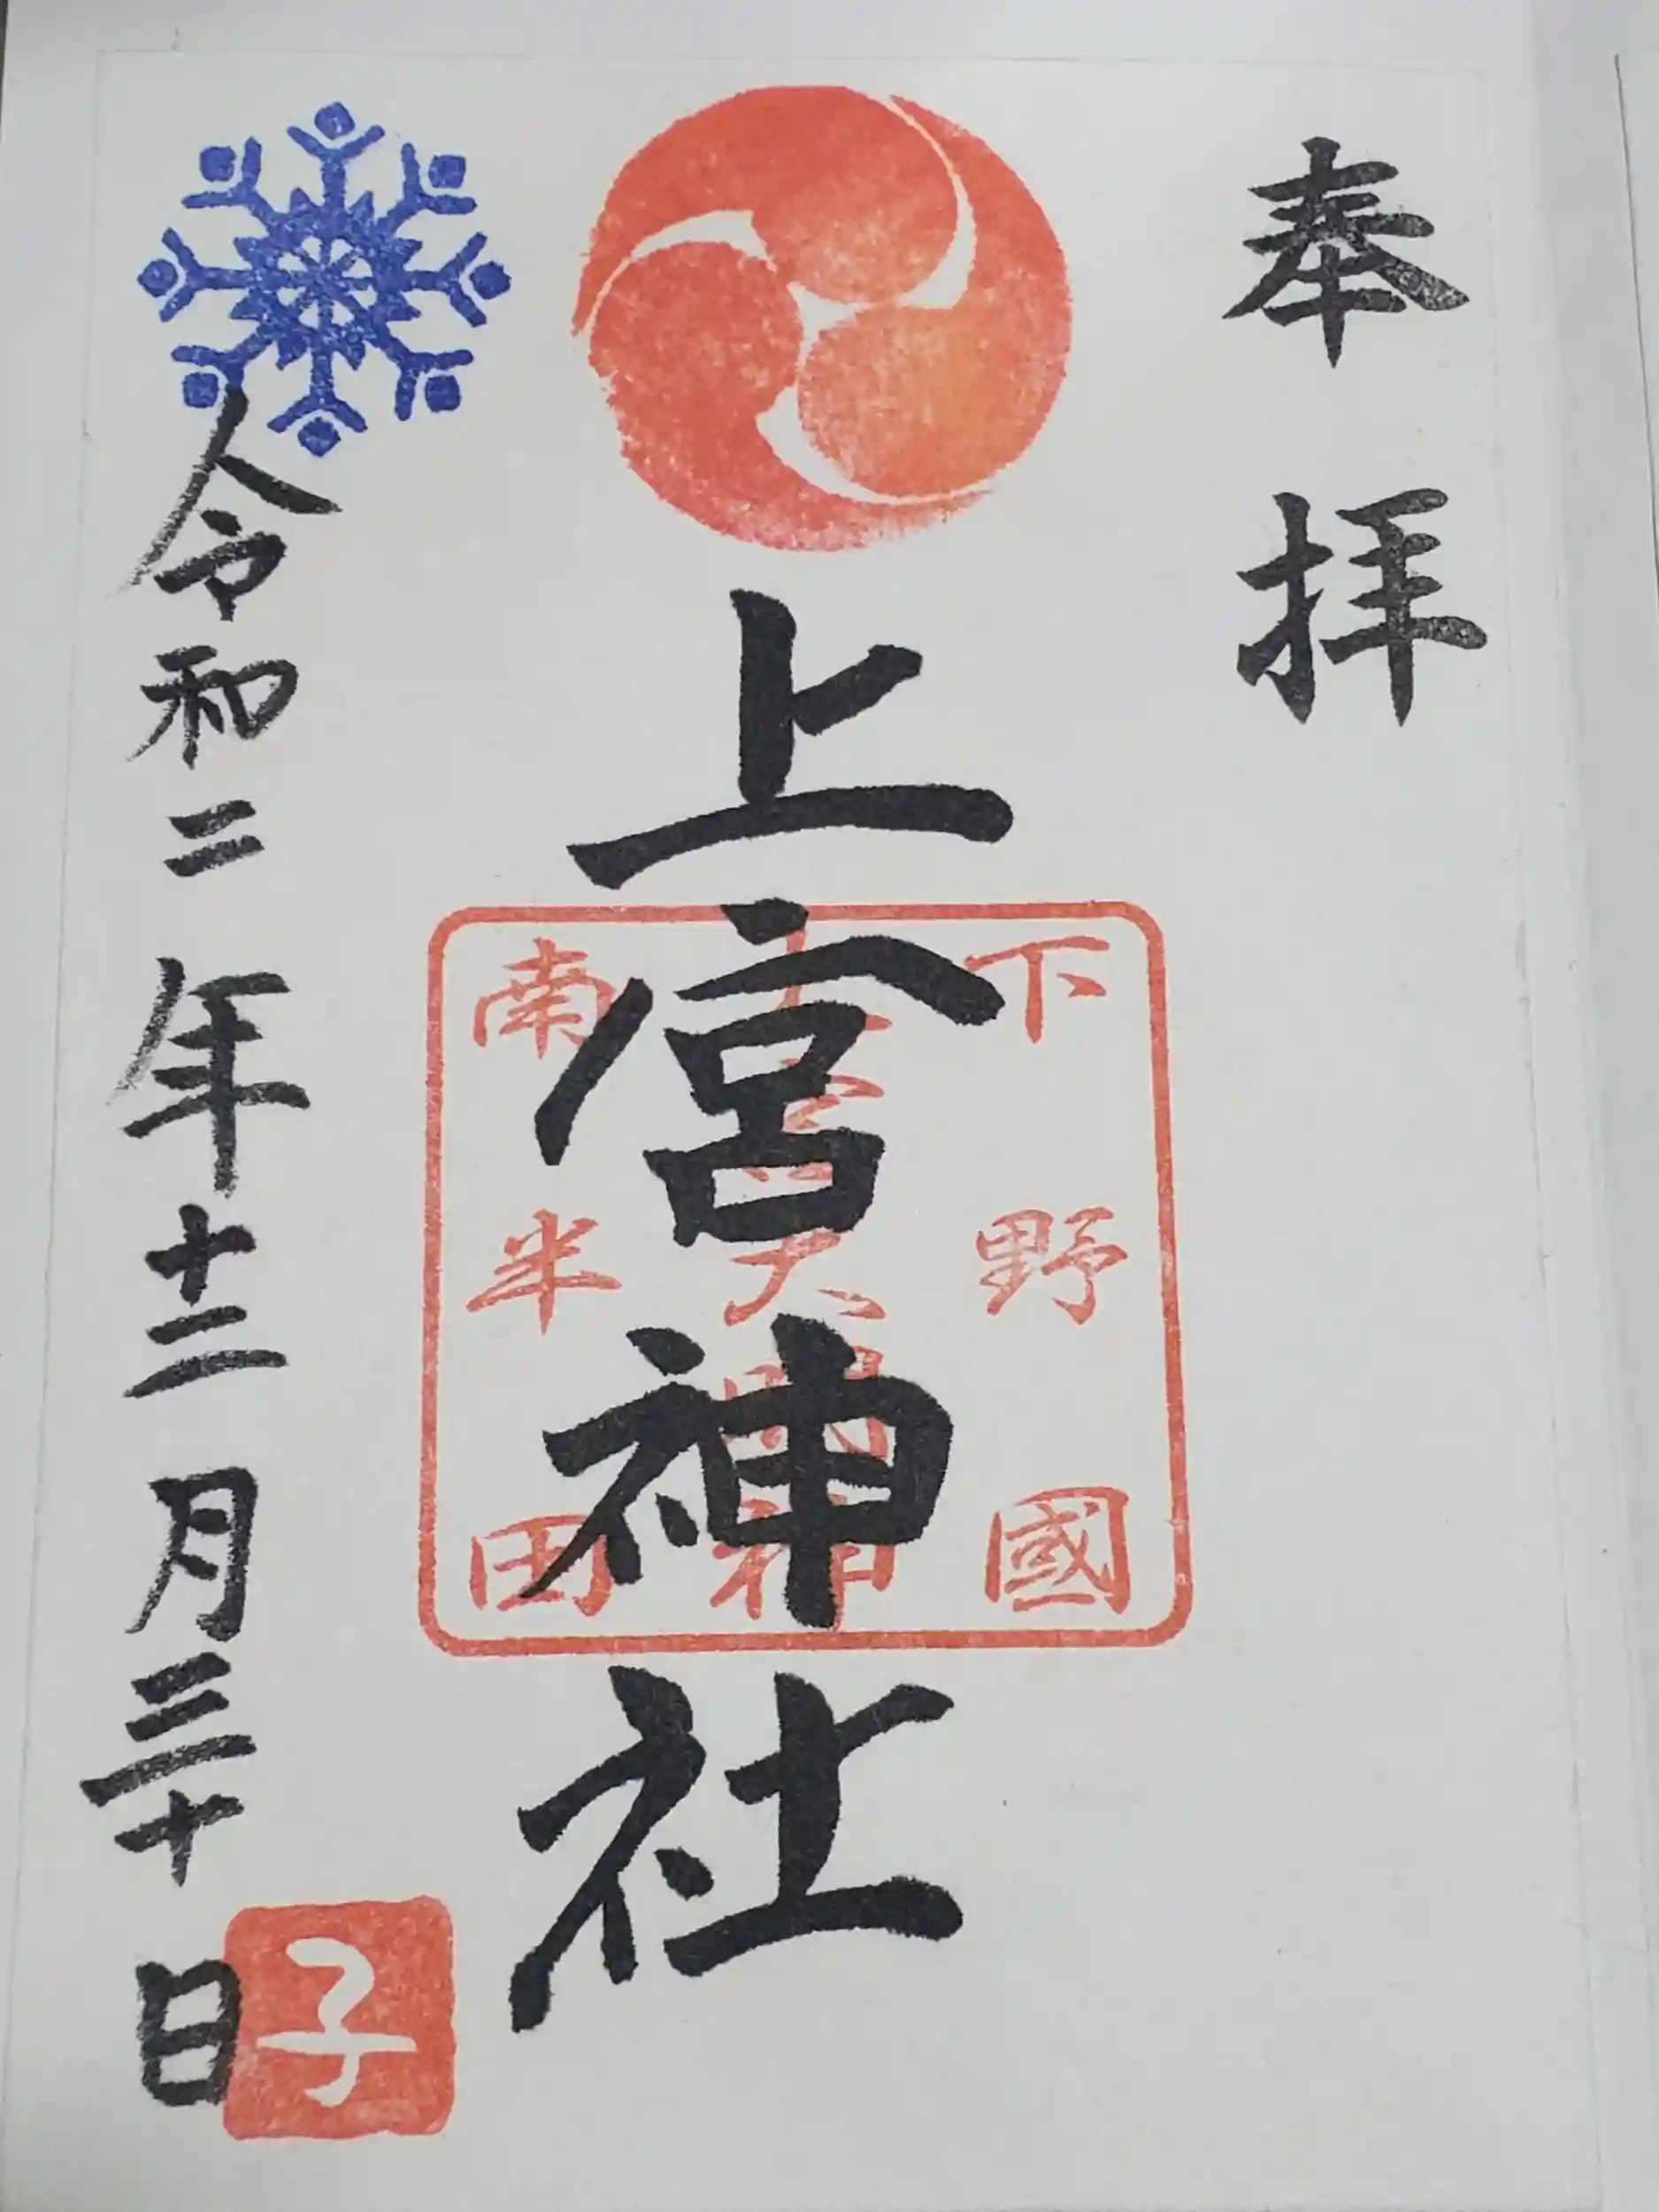 奉拝
上宮神社
下野國
大神
南半田
令和二年十二月三十日
子